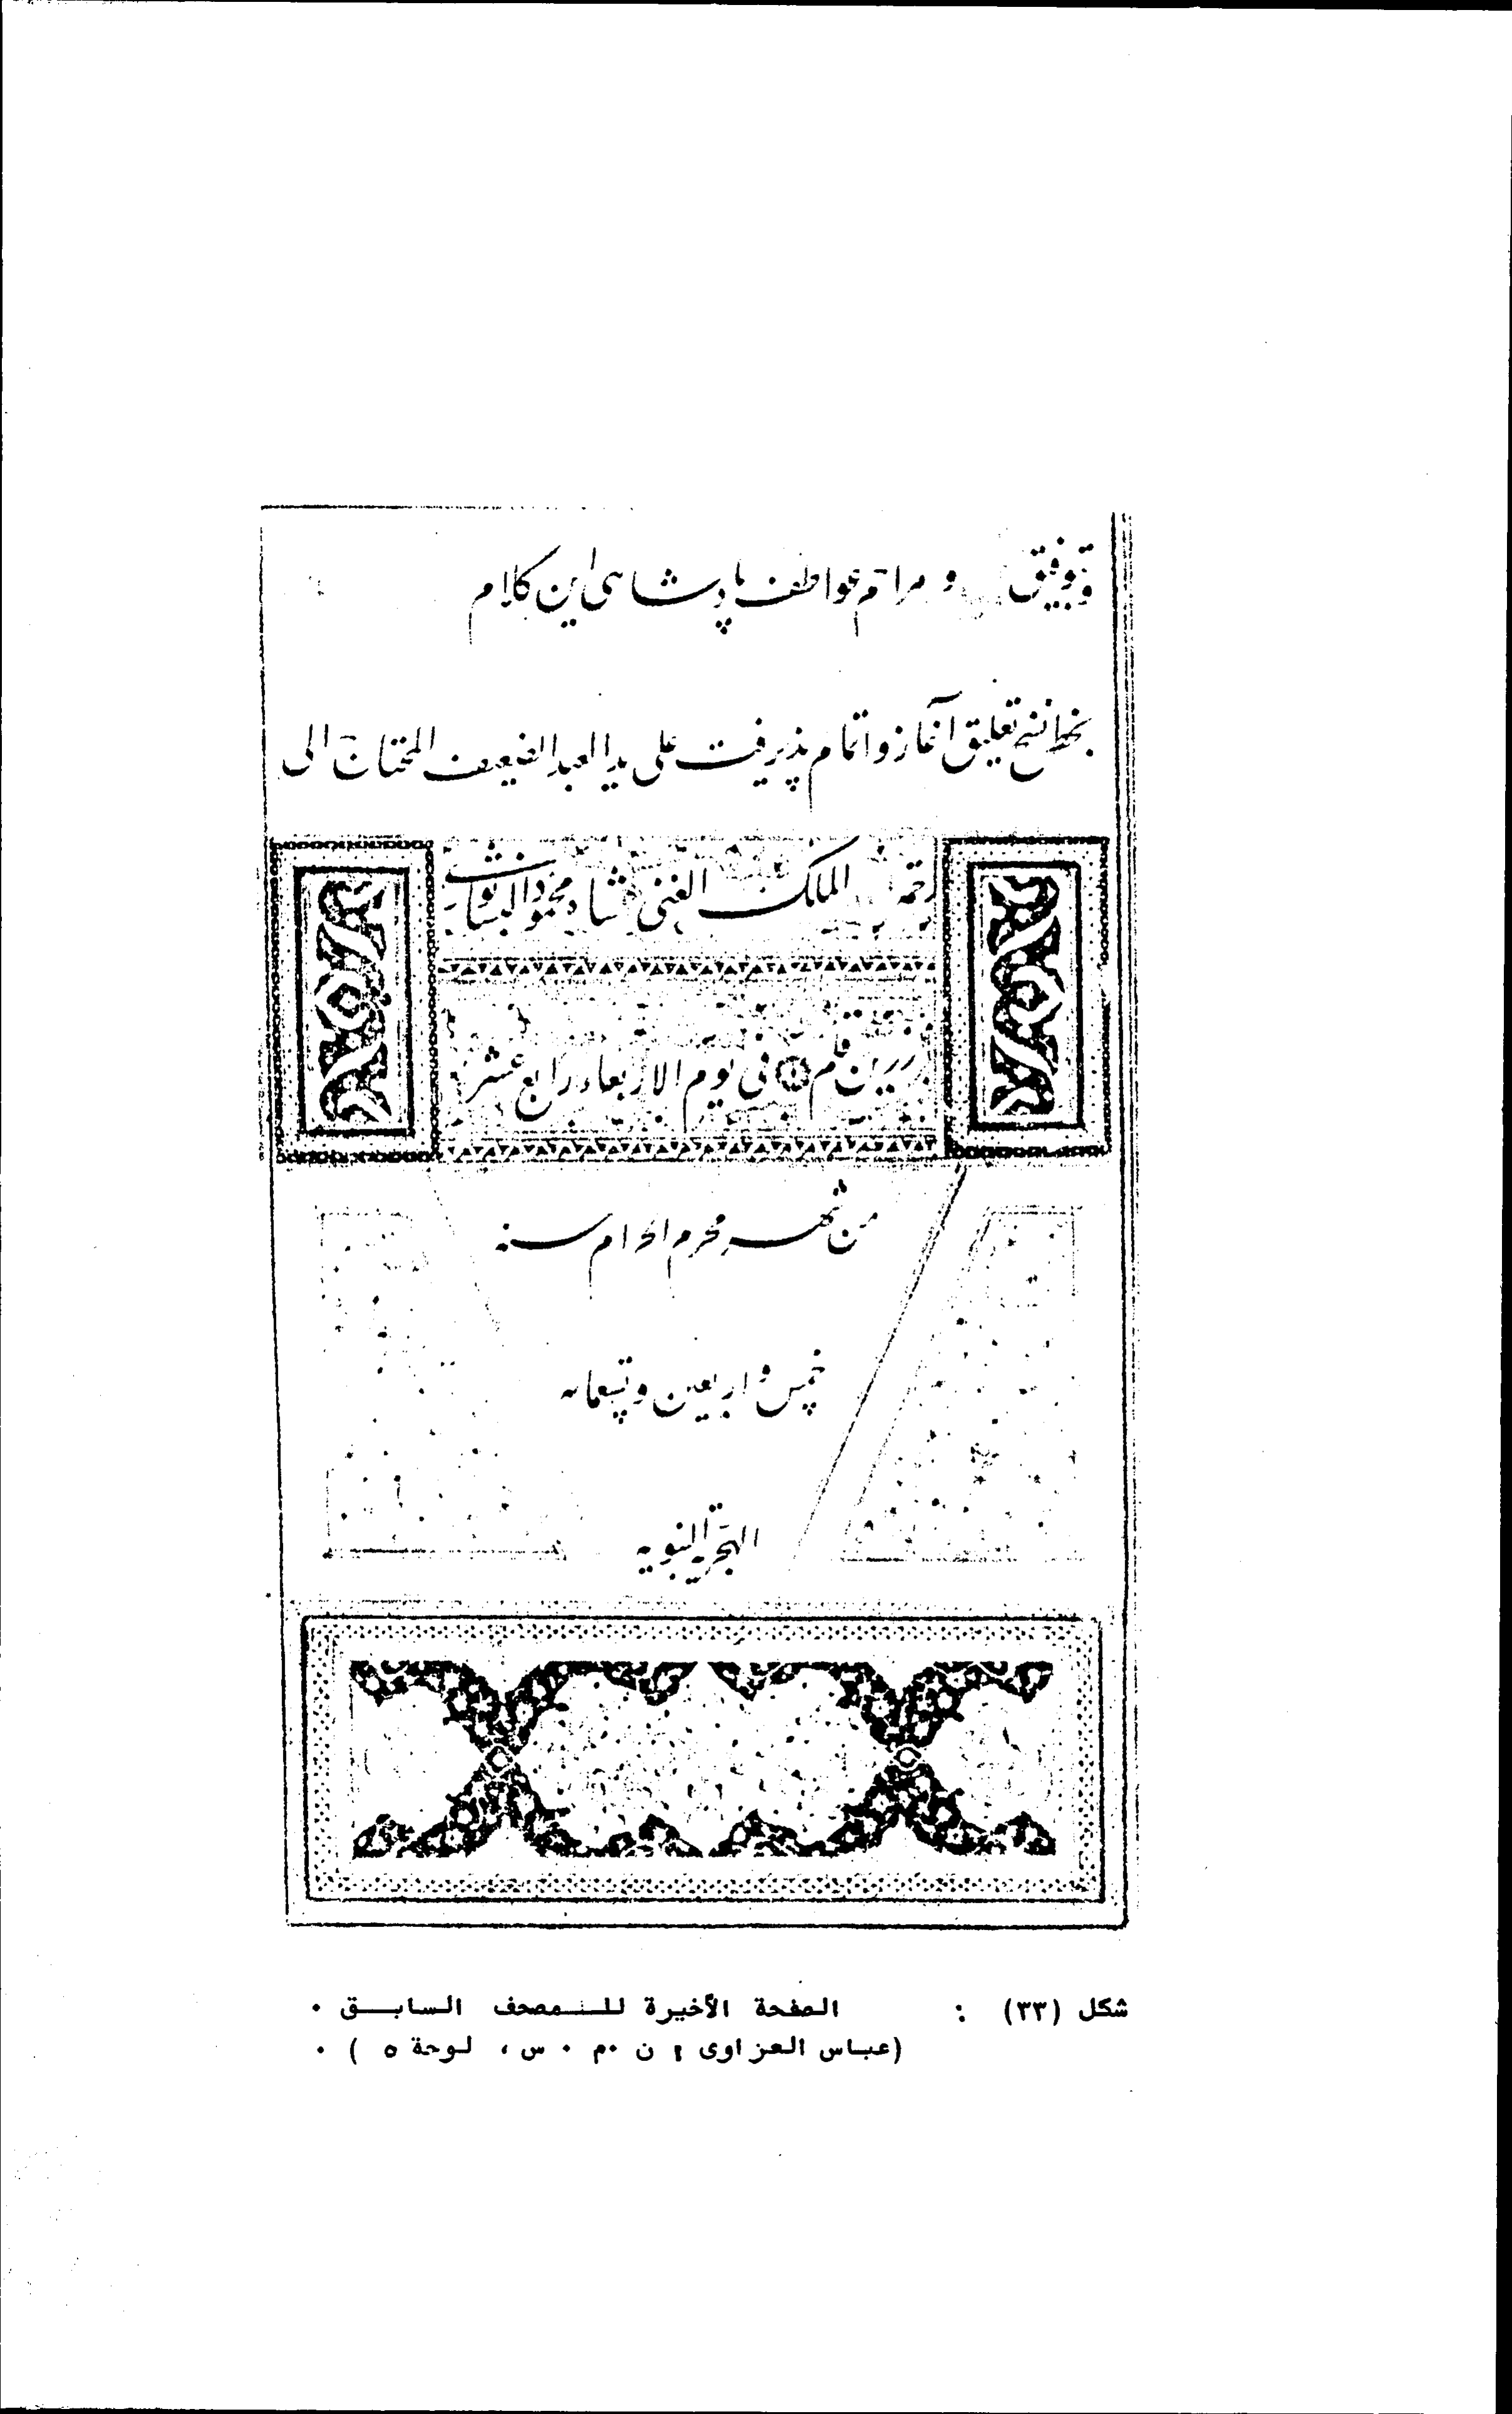 وتوفيق و مراحم عواطف پادشاهی این کلام
بخط نسخ تعلیق آغاز و اتمام پذیرفت علی ید العبد الضعیف المحتاج الی
رحمة الملک الغنی شاه محمود النیشابوری
زرین قلم فی یوم الاربعاء رابع عشر
من شهر محرم الحرام سنه
خمس و اربعین و تسعمائه
الهجریه النبویه
شكل (٣٣) : الصفحة الأخيرة للمصحف السابق .
(عباس العزاوى ، ن . م . س ، لوحة ٥ ) .